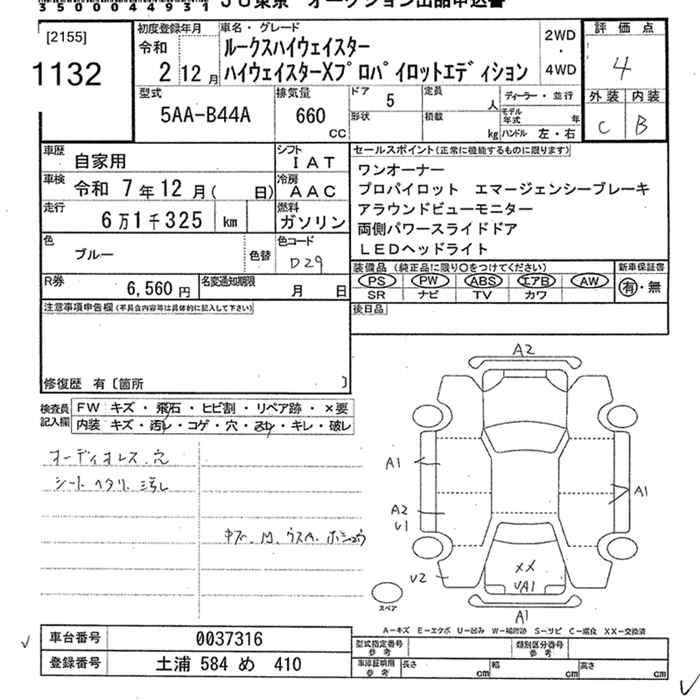 350004493 1
JU東京 オークション出品申込書
[2155]
1132
初度登録年月
令和
2年 12月
車名・グレード
ルークスハイウェイスター
ハイウェイスターXプロパイロットエディション
2WD
・
4WD
評価点
4
外装 内装
C B
型式
5AA-B44A
排気量
660
CC
ドア 5
形状
定員 人
積載 kg
ディーラー・並行
モデル年式 年
ハンドル 左・右
車歴
自家用
シフト
IAT
車検
令和 7年12月( 日)
冷房
AAC
走行
6万1千325 km
燃料
ガソリン
色
ブルー
色替
色コード
D29
R券
6,560円
名変通知期限
月 日
セールスポイント(正常に機能するものに限ります)
ワンオーナー
プロパイロット エマージェンシーブレーキ
アラウンドビューモニター
両側パワースライドドア
LEDヘッドライト
装備品 (純正品に限り○をつけてください)
PS PW ABS エアB AW
SR ナビ TV カワ
新車保証書
有・無
後日品
注意事項申告欄(不具合内容等は具体的に記入して下さい)
修復歴 有〔箇所 〕
検査員記入欄
FW キズ・飛石・ヒビ割・リペア跡・×要
内装 キズ・汚レ・コゲ・穴・スレ・キレ・破レ
オーディオレス.穴
シートヘタリ.汚レ
キズ.凹.ウスペ.ホシュウ
A2
A1
A2
U1
U2
A1
XX
UA1
A1
スペア
A-キズ E-エクボ U-凹み W-補修跡 S-サビ C-腐食 XX-交換済
車台番号 0037316
登録番号 土浦 584 め 410
型式指定番号
参考
類別区分番号
参考
車庫証明用
参考
長さ cm 幅 cm 高さ cm